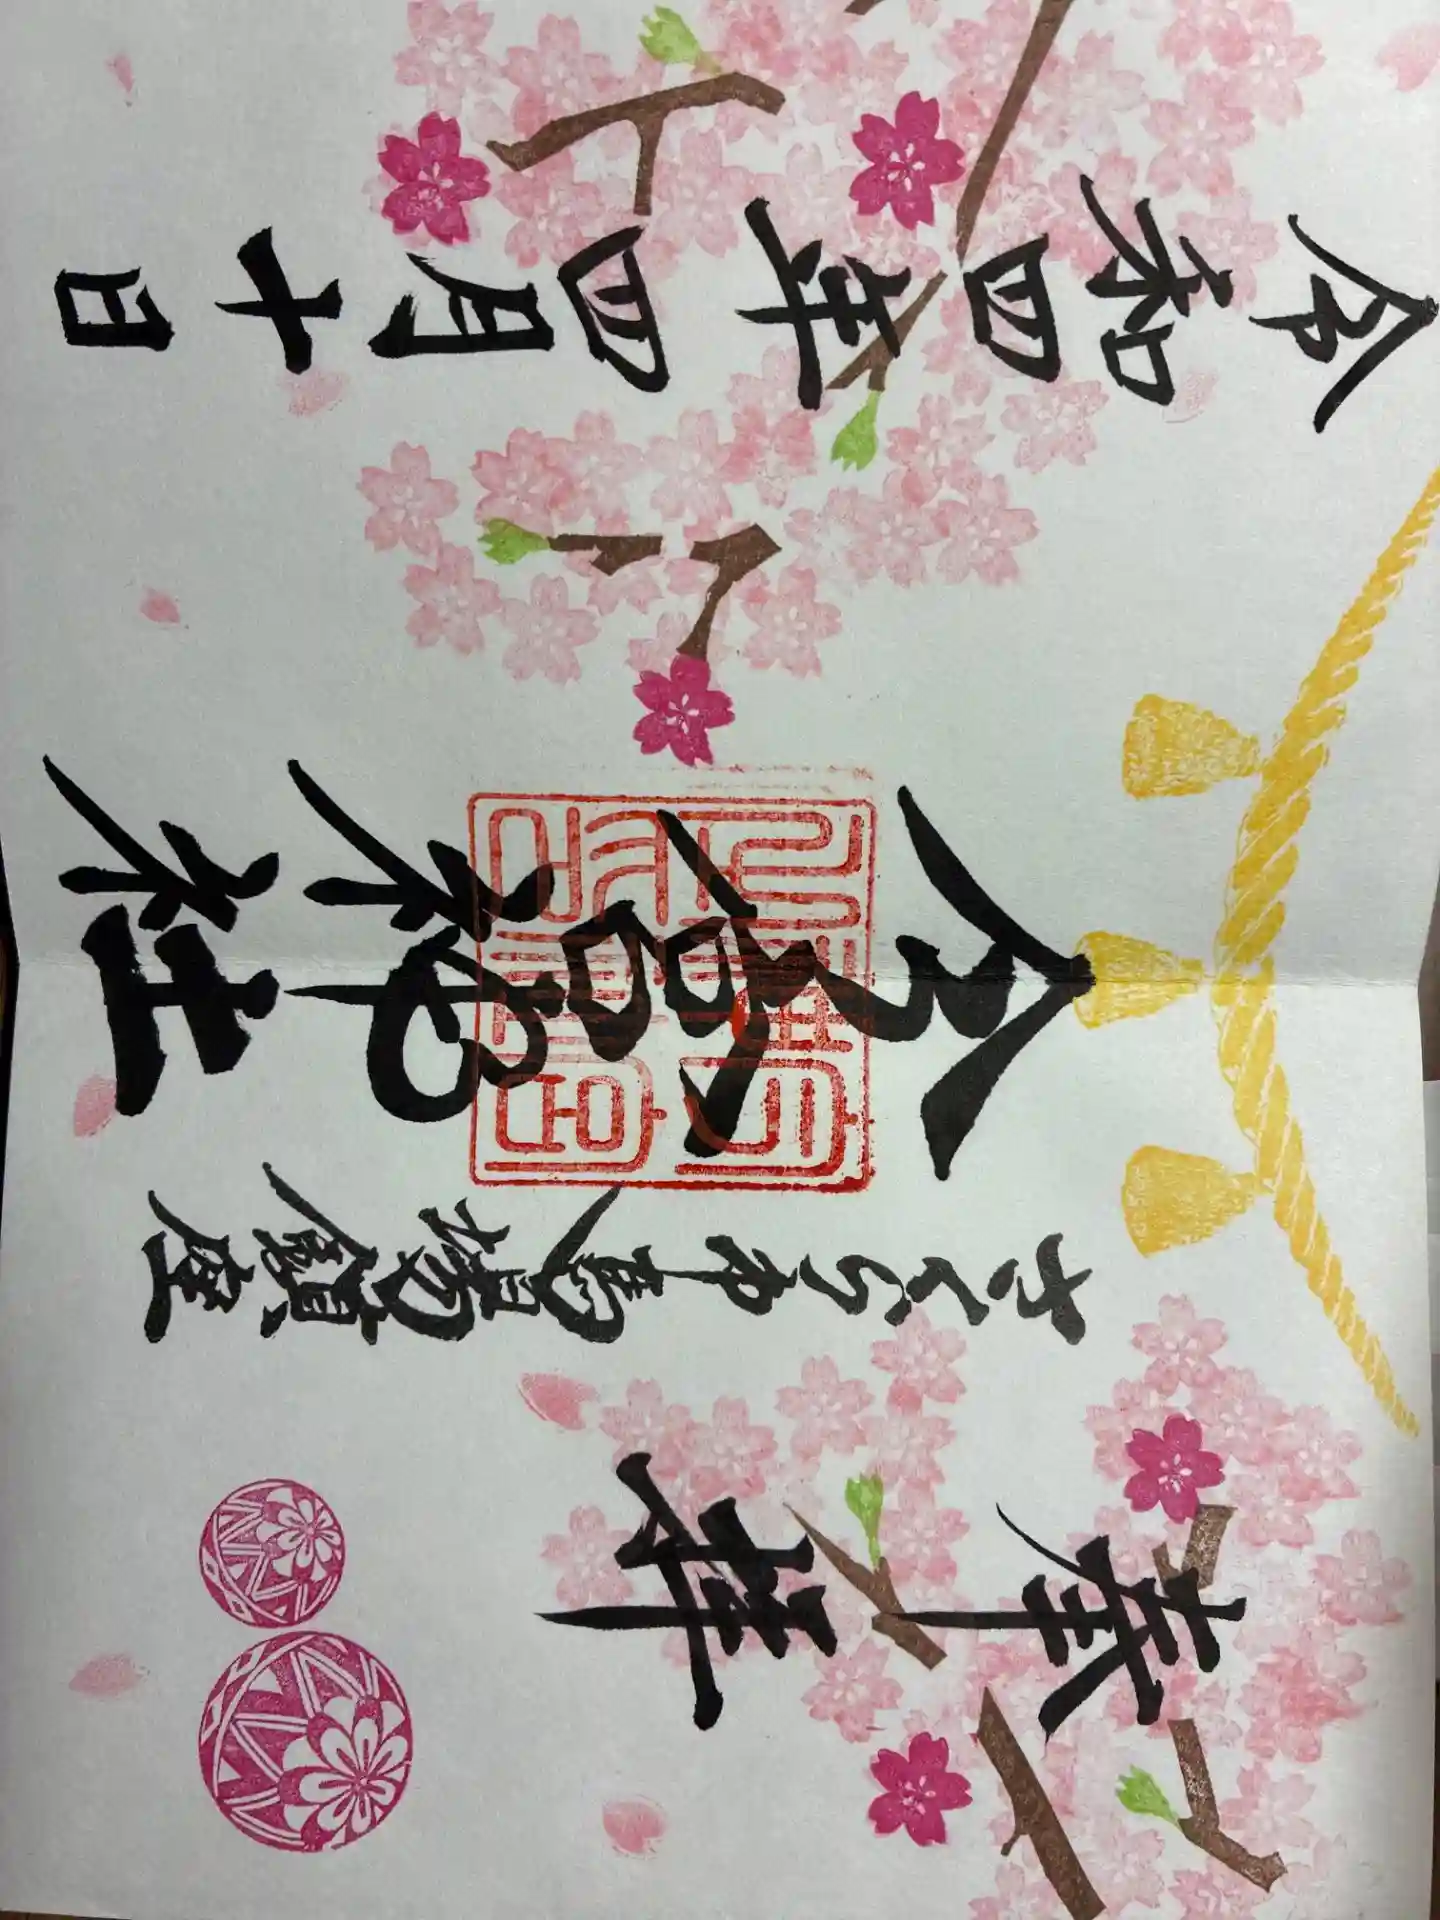 奉拝
さくら市馬場鎮座
今宮神社
令和四年四月十日